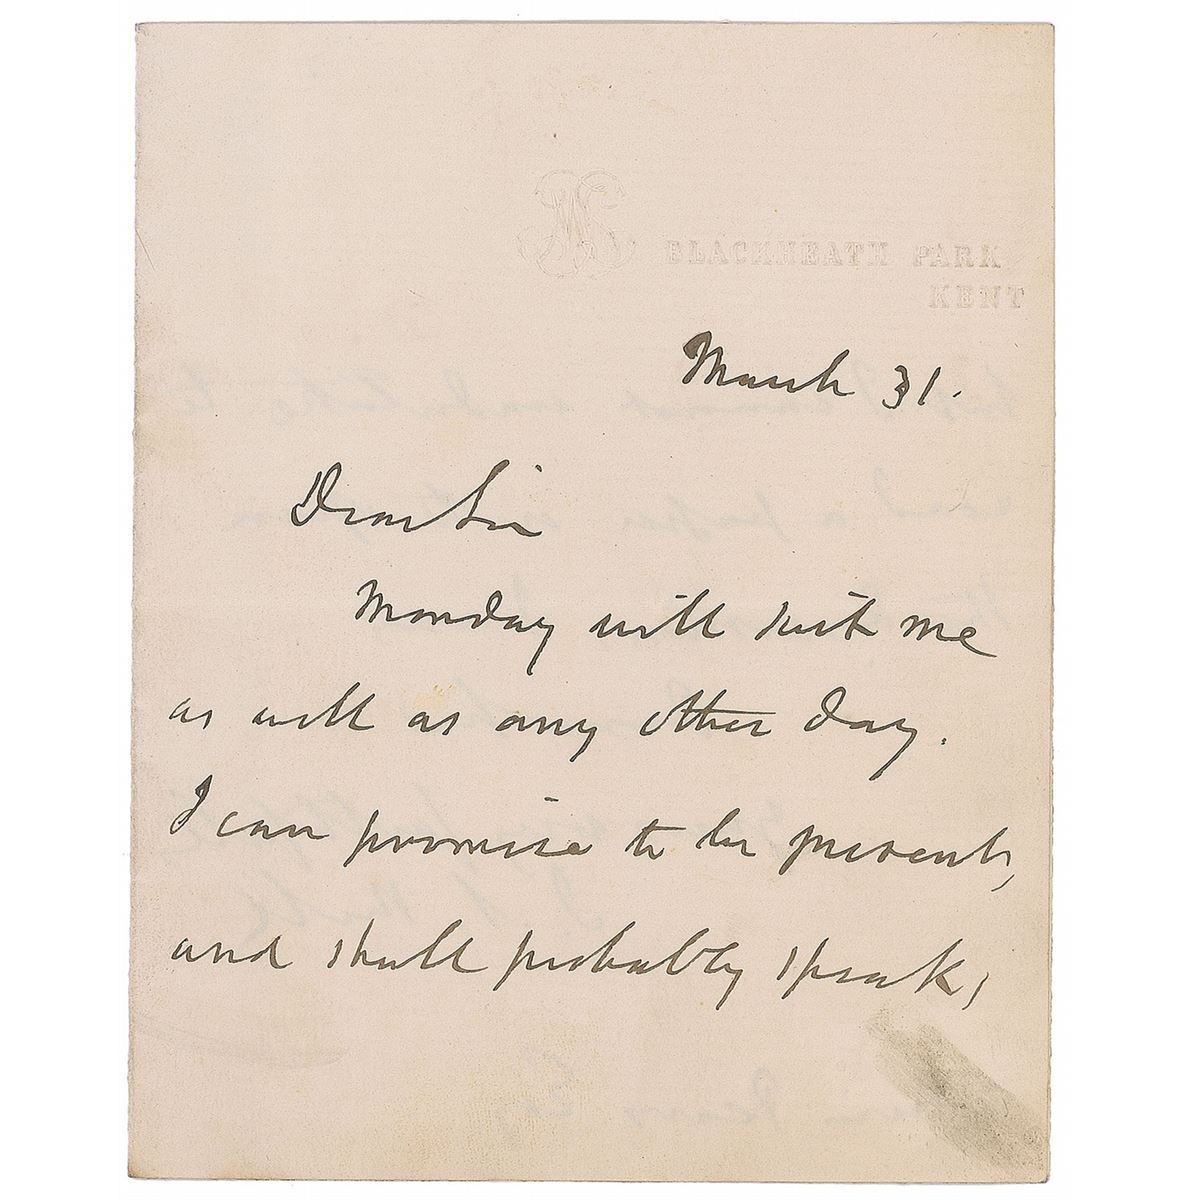 BLACKHEATH PARK
KENT
March 31.
Dear Sir
Monday will suit me
as well as any other day.
I can promise to be present,
and shall probably speak,